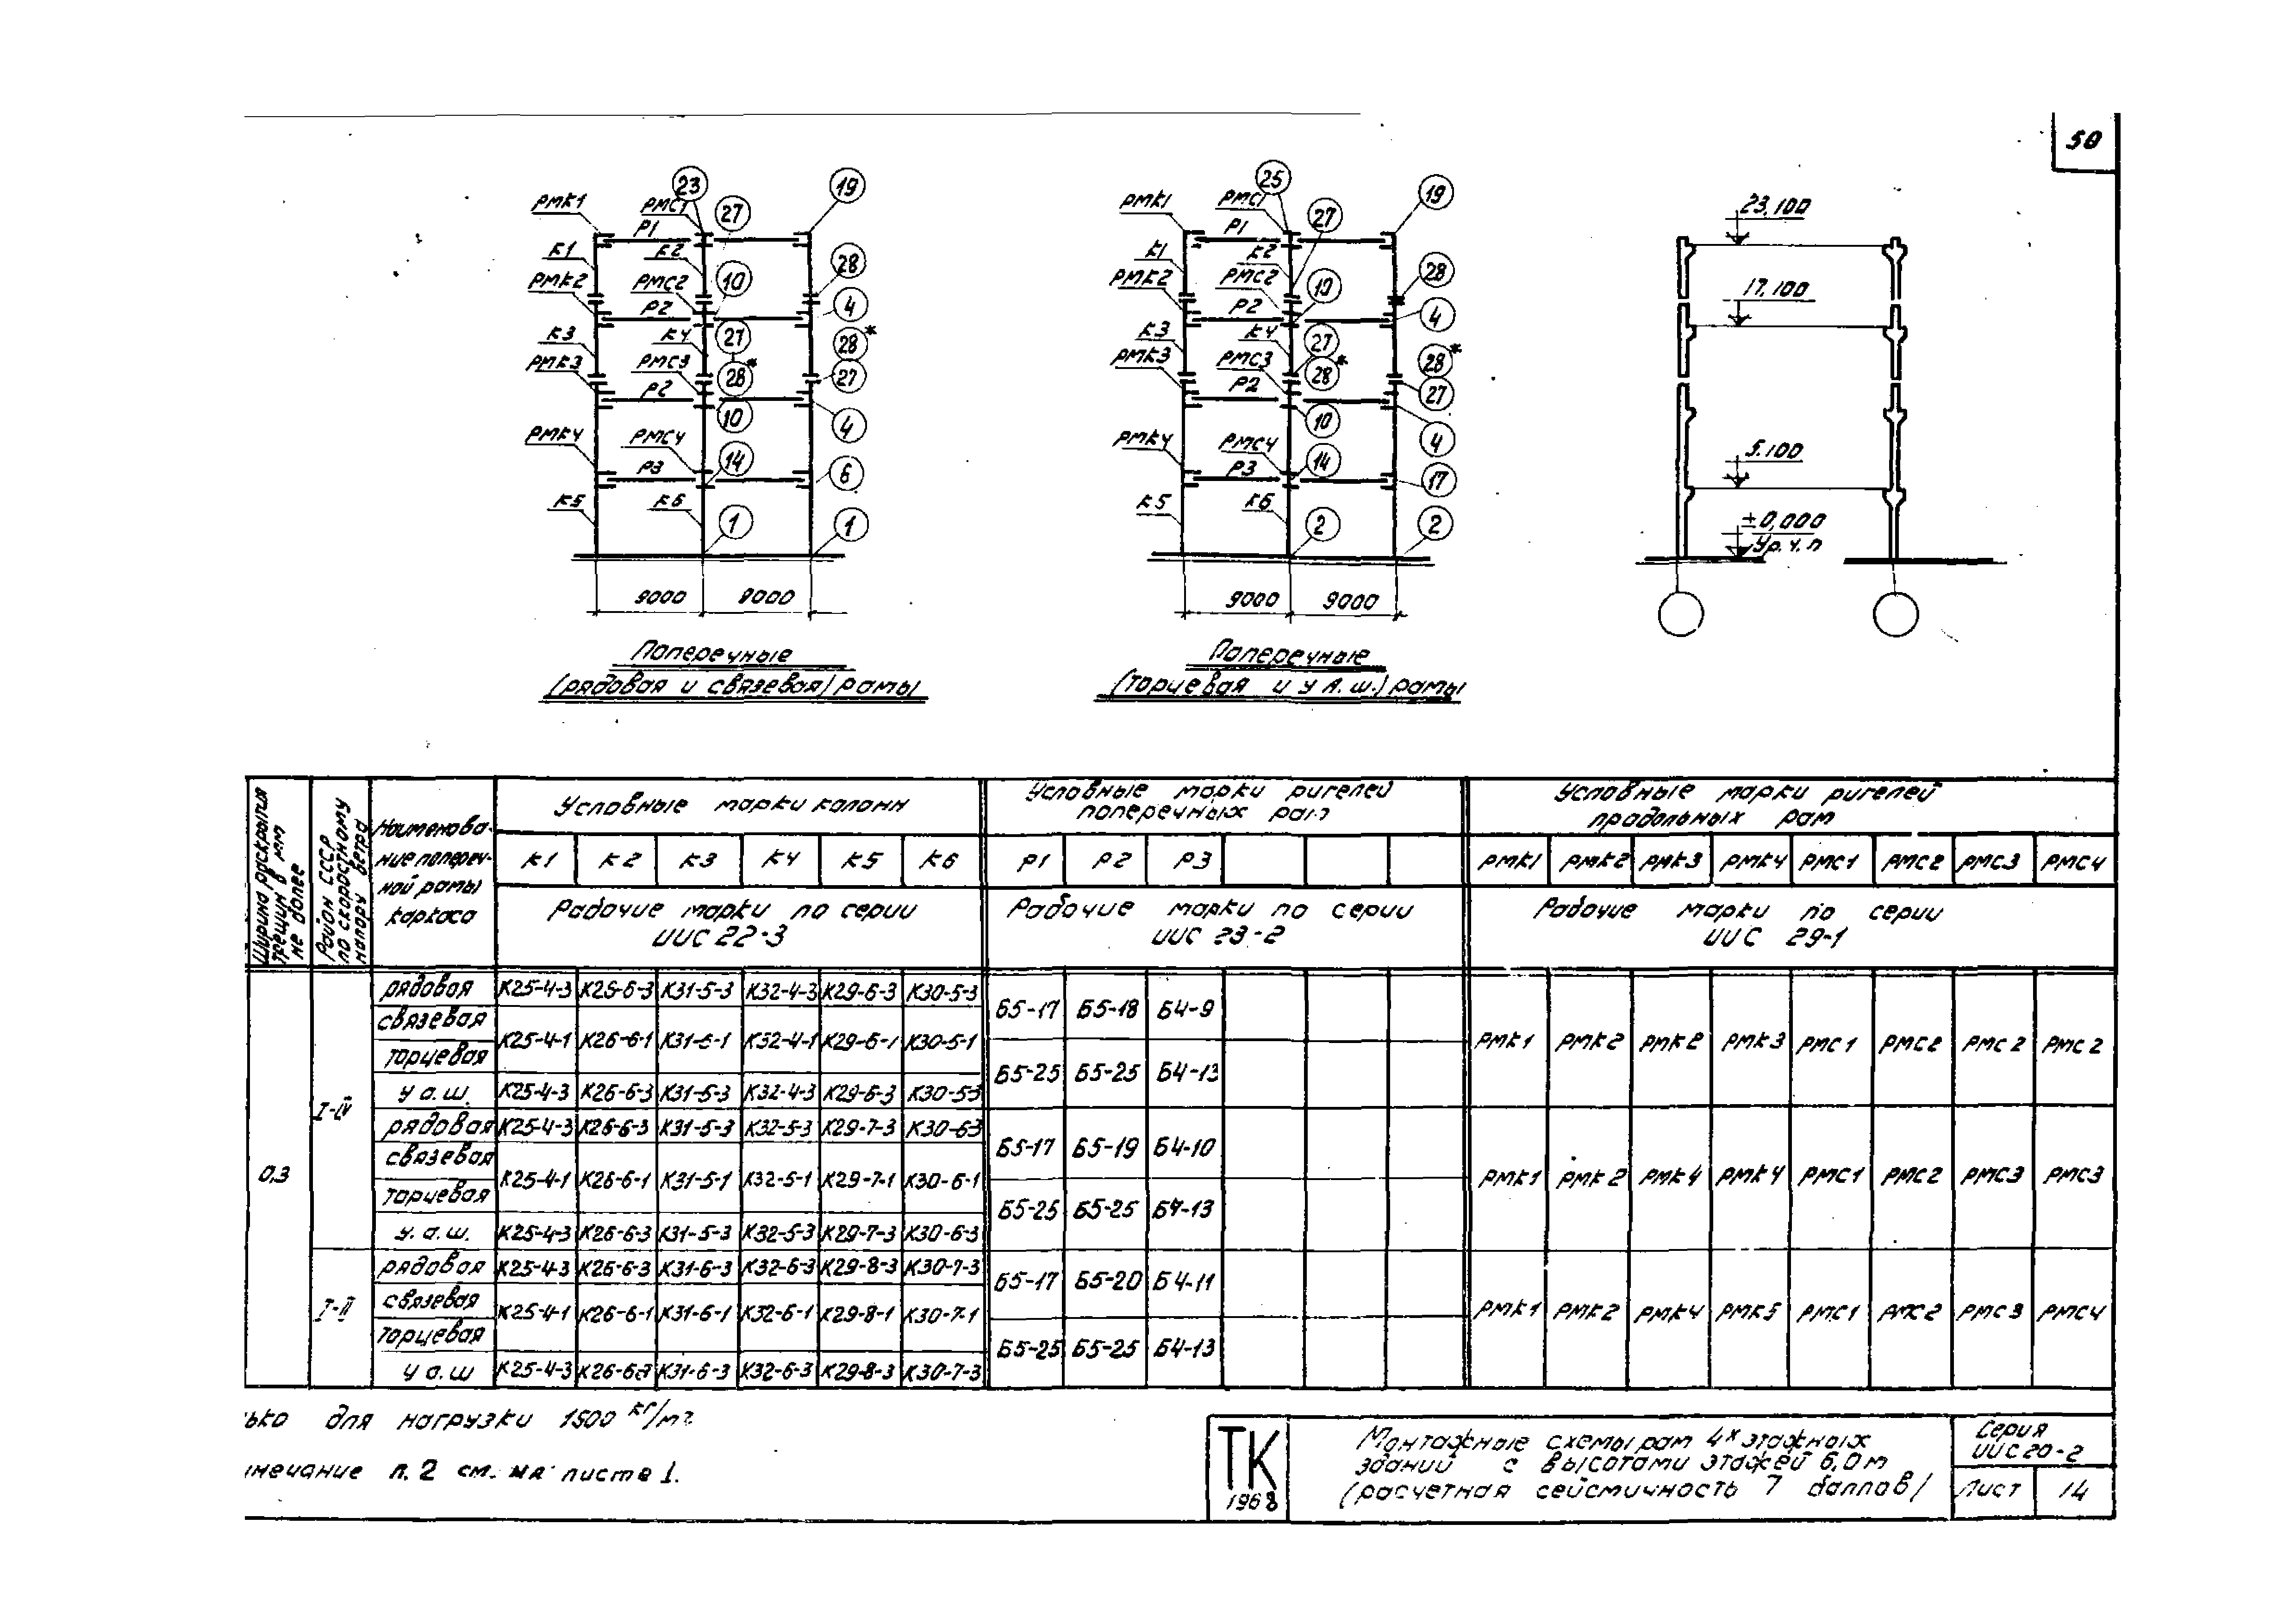 50
23 19
РМК1 РМС1 27
Р1
К1 К2
РМК2 РМС2 10 28
Р2 4
К3 К4 27 28*
РМК3 РМС3 28* 27
Р2
10 4
РМК4 РМС4 14
Р3 6
К5 К6
1 1
9000 9000
Поперечные
(рядовая и связевая) рамы
25 19
РМК1 РМС1 27
Р1
К1 К2
РМК2 РМС2 10 28
Р2 4
К3 К4 27
РМК3 РМС3 28* 28*
Р2 27
10 4
РМК4 РМС4 14
Р3 17
К5 К6
2 2
9000 9000
Поперечные
(торцевая и у А.Ш.) рамы
23.100
17.100
5.100
±0,000
Ур.ч.п
Ширина раскрытия
трещин в мм
не более
Район СССР
по скоростному
напору ветра
Наименова-
ние попереч-
ной рамы
каркаса
Условные марки колонн
К1 К2 К3 К4 К5 К6
Рабочие марки по серии
ИИС 22-3
Условные марки ригелей
поперечных рам
Р1 Р2 Р3
Рабочие марки по серии
ИИС 23-2
Условные марки ригелей
продольных рам
РМК1 РМК2 РМК3 РМК4 РМС1 РМС2 РМС3 РМС4
Рабочие марки по серии
ИИС 29-1
0,3
I-IV
рядовая К25-4-3 К26-6-3 К31-5-3 К32-4-3 К29-6-3 К30-5-3
Б5-17 Б5-18 Б4-9
связевая
К25-4-1 К26-6-1 К31-5-1 К32-4-1 К29-6-1 К30-5-1
РМК1 РМК2 РМК2 РМК3 РМС1 РМС2 РМС2 РМС2
торцевая
Б5-25 Б5-25 Б4-13
у а.ш. К25-4-3 К26-6-3 К31-5-3 К32-4-3 К29-6-3 К30-5-3
рядовая К25-4-3 К26-6-3 К31-5-3 К32-5-3 К29-7-3 К30-6-3
Б5-17 Б5-19 Б4-10
связевая
К25-4-1 К26-6-1 К31-5-1 К32-5-1 К29-7-1 К30-6-1
РМК1 РМК2 РМК4 РМК4 РМС1 РМС2 РМС3 РМС3
торцевая
Б5-25 Б5-25 Б4-13
у. а.ш. К25-4-3 К26-6-3 К31-5-3 К32-5-3 К29-7-3 К30-6-3
I-II
рядовая К25-4-3 К26-6-3 К31-6-3 К32-6-3 К29-8-3 К30-7-3
Б5-17 Б5-20 Б4-11
связевая
К25-4-1 К26-6-1 К31-6-1 К32-6-1 К29-8-1 К30-7-1
РМК1 РМК2 РМК4 РМК5 РМС1 РМС2 РМС3 РМС4
торцевая
Б5-25 Б5-25 Б4-13
у а.ш К25-4-3 К26-6-3 К31-6-3 К32-6-3 К29-8-3 К30-7-3
ько для нагрузки 1500 кг/м²
мечание п.2 см. на листе 1.
ТК
1968
Монтажные схемы рам 4х этажных
зданий с высотами этажей 6,0м
(расчетная сейсмичность 7 баллов)
Серия
ИИС20-2
Лист 14